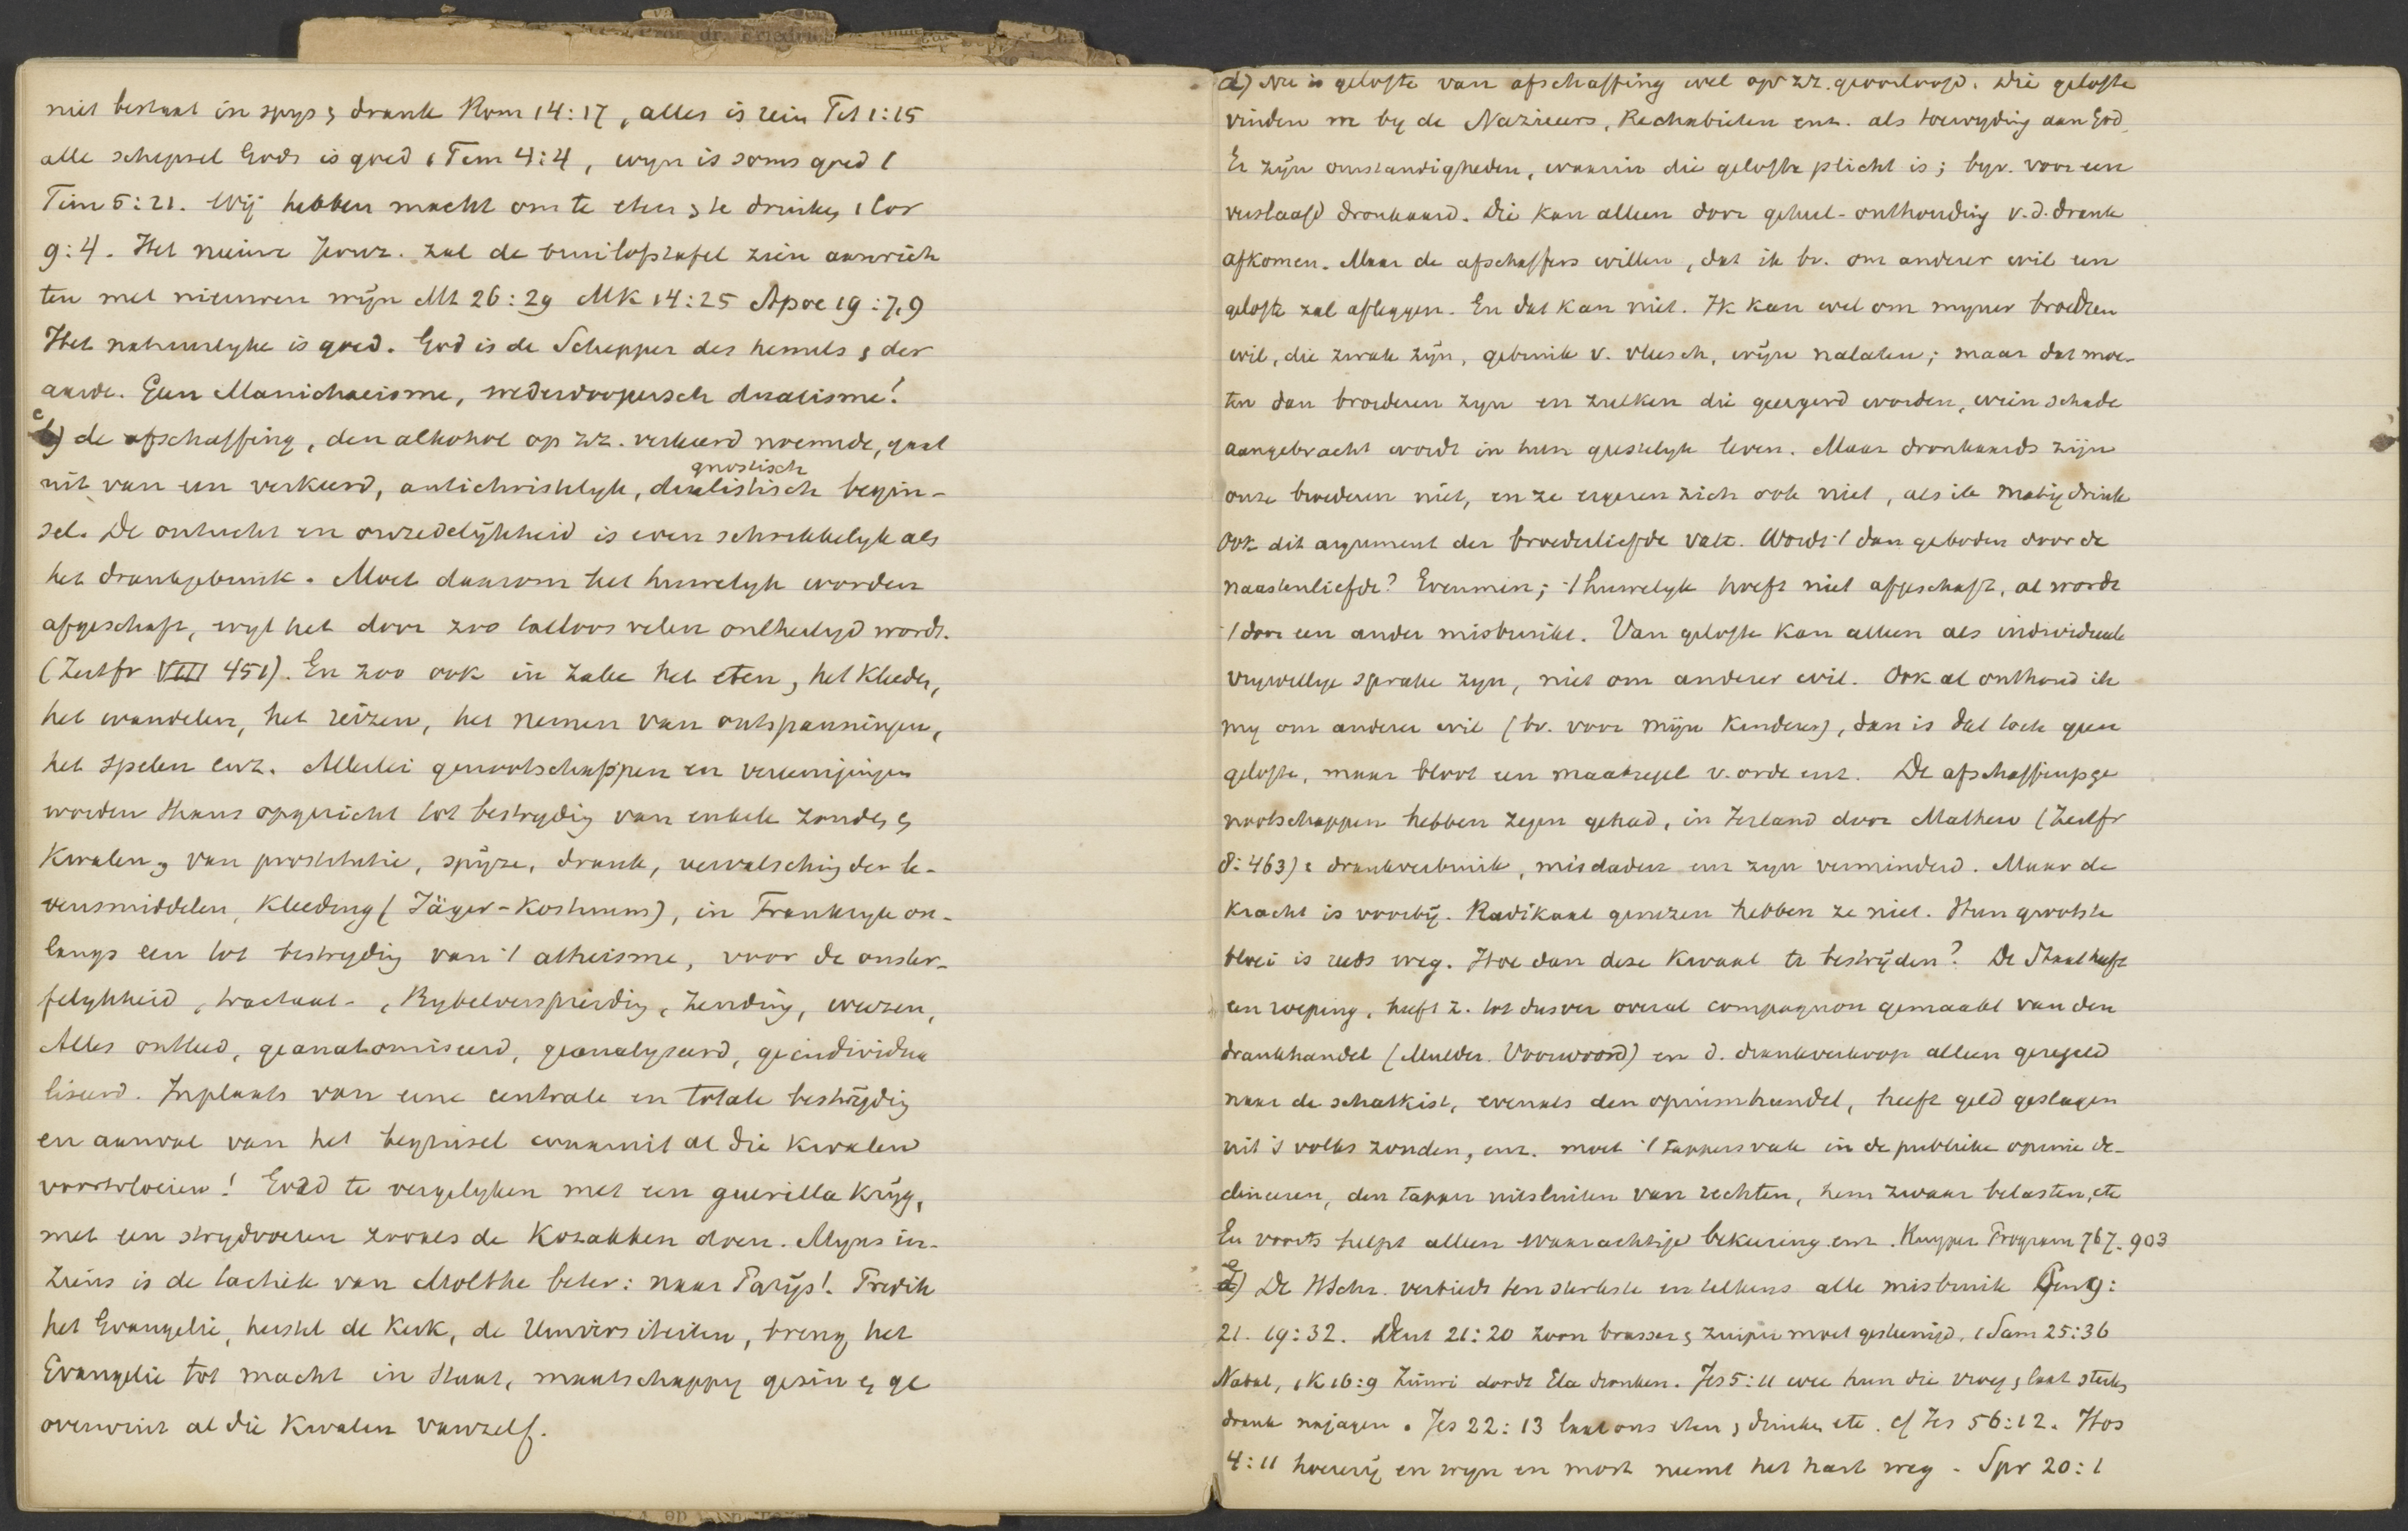 niet bestaat in spys & drank Rom 14:17, alles is rein Tit 1:15
alle schepsel Gods is goed 1 Tim 4:4, wyn is soms goed 1
Tim 5:21. Wij hebben macht om te eten & te drinken, 1 Cor
9:4. Het nieuwe Jeruz. zal de bruiloftstafel zien aanrich
ten met nieuwen wijn Mt 26:29 Mk 14:25 Apoc 19:7,9
Het natuurlyke is goed. God is de Schepper des hemels & der
aarde. Geen Manichaeisme, wederdoopersch dualisme!
c) de afschaffing, den alkohol op zz. verkeerd noemende, gaat
gnostisch
uit van een verkeerd, antichristelyk, dualistisch begin-
sel. De ontucht en onzedelijkheid is even schrikkelyk als
het drankgebruik. Moet daarom het huwelyk worden
afgeschaft, wyl het door zoo talloos velen ontheiligd wordt.
(Zeitfr VIII 451). En zoo ook in zake het eten, het kleeden,
het wandelen, het reizen, het nemen van ontspanningen,
het spelen enz. Allerlei genootschappen en vereenigingen
worden thans opgericht tot bestryding van enkele zonden &
kwalen, van prostitutie, spijze, drank, vervalsching der le-
vensmiddelen, kleeding (Jäger-Kostuums), in Frankryk on-
langs een tot bestryding van 't atheisme, voor de onster-
felykheid, tractaat-, Bybelverspreiding, zending, weezen,
Alles ontleed, geanatomiseerd, geanalyseerd, geindividua
liseerd. Inplaats van eene centrale en totale bestrijding
en aanval van het beginsel waaruit al die kwalen
voortvloeien! Goed te vergelyken met een guerilla krijg,
met een strydvoeren zooals de Kozakken doen. Myns in-
ziens is de tactiek van Molthe beter: naar Parijs! Predik
het Evangelie, herstel de Kerk, de Universiteiten, breng het
Evangelie tot macht in Staat, maatschappy gezin & ge
overwint al die kwalen vanzelf.
d) Nu is gelofte van afschaffing wel op zz. geoorloofd. Die gelofte
vinden we by de Nazireers, Rechabieten enz. als toewyding aan God,
Er zijn omstandigheden, waarin die gelofte plicht is; bijv. voor een
verslaafd dronkaard. Die kan alleen door geheel-onthouding v.d. drank
afkomen. Maar de afschaffers willen, dat ik bv. om anderer wil een
gelofte zal afleggen. En dat kan niet. Ik kan wel om myner broedren
wil, die zwak zijn, gebruik v. vleesch, wijn nalaten; maar dat moe-
ten dan broederen zyn en zulken die geergerd worden, wien schade
aangebracht wordt in hun geestelyk leven. Maar dronkaards zijn
onze broederen niet, en ze ergeren zich ook niet, als ik matig drink
Ook dit argument der broederliefde valt. Wordt 't dan geboden door de
naastenliefde? Evenmin; 't huwelyk hoeft niet afgeschaft, al wordt
't door een ander misbruikt. Van gelofte kan alleen als individueele
vrywillige sprake zyn, niet om anderer wil. Ook al onthoud ik
my om anderer wil (bv. voor mijn kinderen), dan is dat toch geen
gelofte, maar bloot een maatregel v. orde enz. De afschaffingsge
nootschappen hebben zegen gehad, in Ierland door Mathew (Zeitfr
8:463): drankverbruik, misdaden enz zyn verminderd. Maar de
kracht is voorbij. Radikaal genezen hebben ze niet. Hun grootste
bloei is reeds weg. Hoe dan deze kwaal te bestrijden? De Staat heeft
een roeping, heeft z. tot dusver overal compagnon gemaakt van den
drankhandel (Mulder. Voorwoord) en d. drankverkoop alleen geregeld
naar de schatkist, evenals den opiumhandel, heeft geld geslagen
uit 's volks zonden, enz. moet 't tappersvak in de publieke opinie de-
clineeren, den tapper uitsluiten van rechten, hem zwaar belasten, etc
En voorts helpt alleen waarachtige bekeering enz. Kuyper Program 767. 903
e) De HSchr. verbiedt ten sterkste en telkens alle misbruik Gen 9:
21. 19:32. Deut 21:20 zoon brasser & zuiper moet gesteenigd, 1 Sam 25:36
Nabal, 1 K 16:9 Zimri doodt Ela dronken. Jes 5:11 wee hun die vroeg & laat sterken
drank najagen. Jes 22:13 laat ons eten & drinken etc. cf Jes 56:12. Hos
4:11 hoererij en wyn en most neemt het hart weg. Spr 20:1